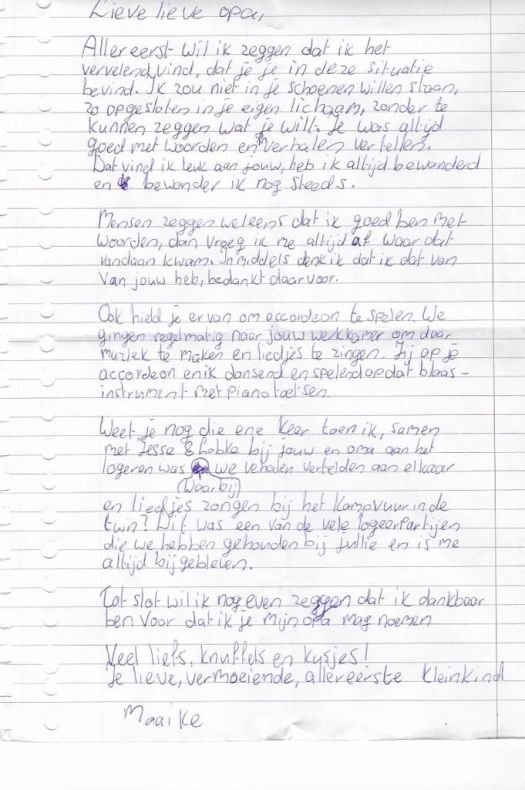 Lieve lieve opa,
Allereerst wil ik zeggen dat ik het
vervelend vind, dat je je in deze situatie
bevind. Ik zou niet in je schoenen willen staan,
zo opgesloten in je eigen lichaam, zonder te
kunnen zeggen wat je wilt. Je was altijd
goed met woorden en verhalen vertellen.
Dat vind ik leuk aan jouw, heb ik altijd bewonderd
en bewonder ik nog steeds.
Mensen zeggen weleens dat ik goed ben met
woorden, dan vroeg ik me altijd af waar dat
vandaan kwam. Inmiddels denk ik dat ik dat van
van jouw heb, bedankt daarvoor.
Ook hield je ervan om accordeon te spelen. We
gingen regelmatig naar jouw werkkamer om daar
muziek te maken en liedjes te zingen. Jij op je
accordeon en ik dansend en spelend op dat blaas-
instrument met pianotoetsen.
Weet je nog die ene keer toen ik, samen
met Jesse & Lobke bij jouw en oma aan het
logeren was we verhalen vertelden aan elkaar
(waarbij)
en liedjes zongen bij het kampvuur in de
tuin? Dit was een van de vele logeerpartijen
die we hebben gehouden bij jullie en is me
altijd bijgebleven.
Tot slot wil ik nog even zeggen dat ik dankbaar
ben voor dat ik je mijn opa mag noemen
Veel liefs, knuffels en kusjes!
Je lieve, vermoeiende, allereerste kleinkind
Maaike